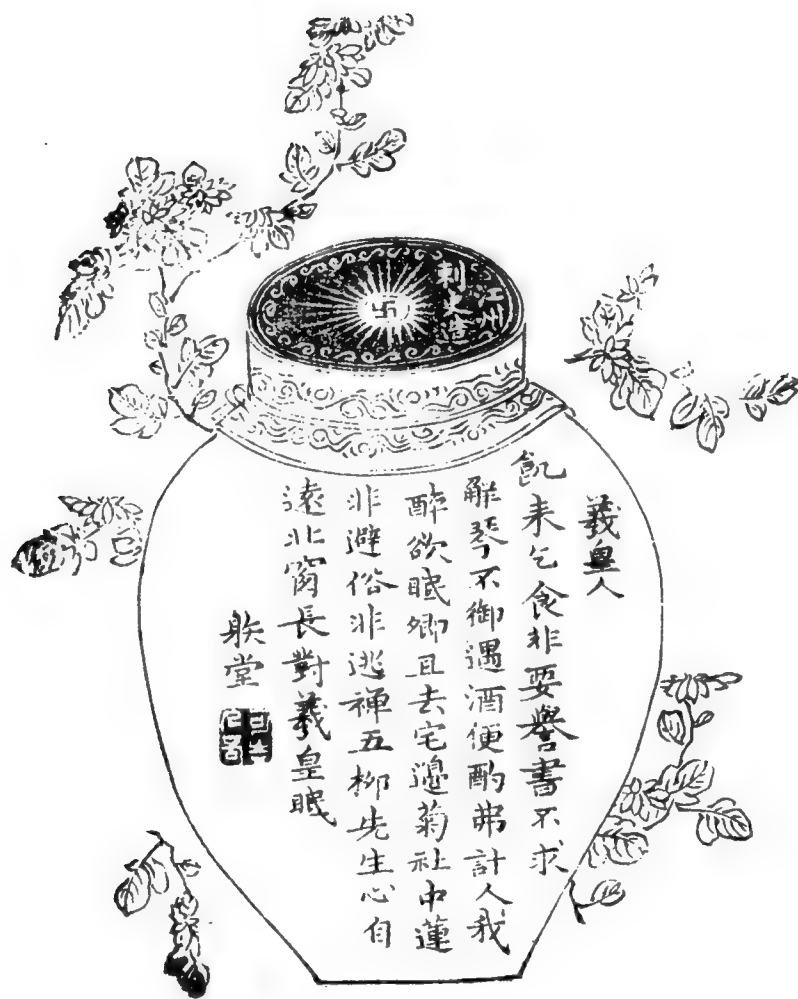 江州
刺史造
羲皇人
飢来乞食非要譽書不求
解琴不御遇酒便酌弗計人我
醉欲眠卿且去宅邊菊社中蓮
非避俗非逃禅五柳先生心自
遠北窗長對羲皇眠
朕堂